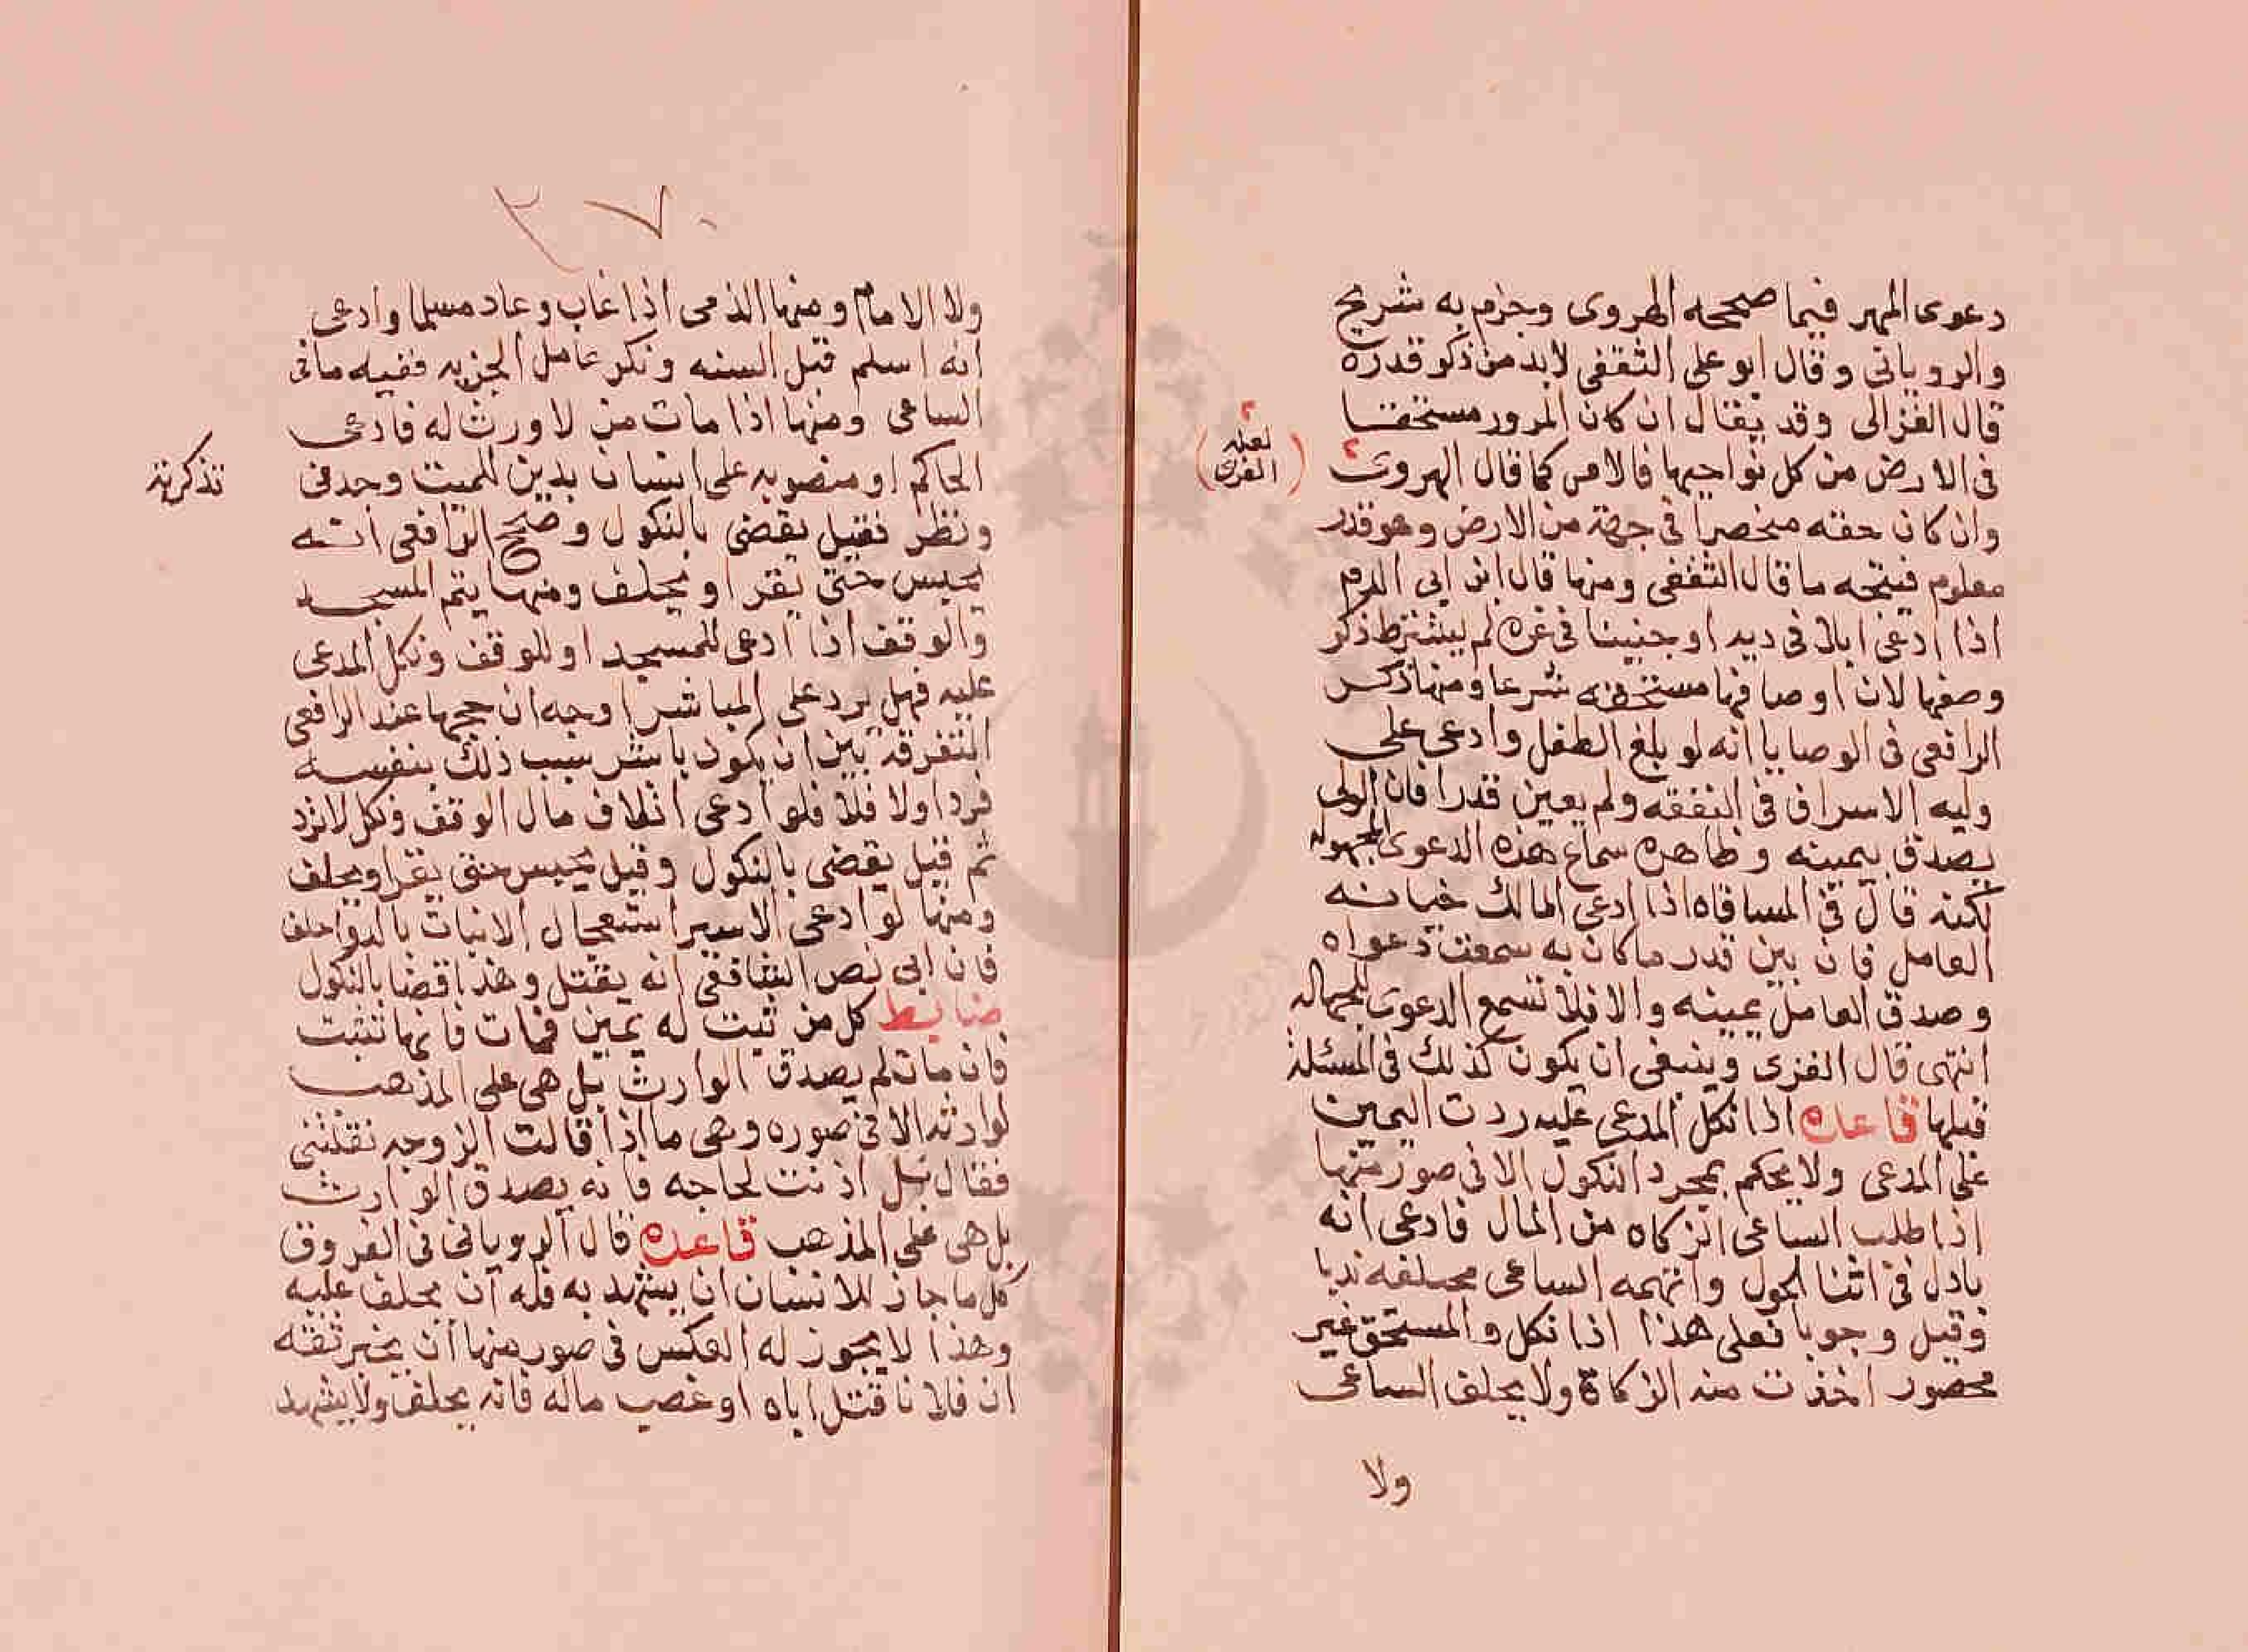 دعوى المهر فيما صححه الهروى وجزم به شريح
والرويانى وقال ابو على الثقفى لابد من ذكر قدره
قال الغزالى وقد يقال ان كان المرور مستحقا
فى الارض من كل نواحيها فالامر كما قال الهروى
لعله
الغزى
وان كان حقه منحصرا فى جهة من الارض وهو قدر
معلوم فيتجه ما قال الثقفى ومنها قال ابن ابى الدم
اذا ادعى ابلا فى ديه او جنينا فى غره لم يشترط ذكر
وصفها لان اوصافها مستحقه شرعا ومنها ذكر
الرافعى فى الوصايا انه لو بلغ الطفل وادعى على
وليه الاسراف فى النفقه ولم يعين قدرا فان الولى
يصدق بيمينه وظاهره سماع هذه الدعوى المجهوله
لكنه قال فى المساقاه اذا ادعى المالك خيانه
العامل فان بين قدر ما كان به سمعت دعواه
وصدق العامل بيمينه والا فلا تسمع الدعوى للجهاله
انتهى قال الغزى وينبغى ان يكون كذلك فى المسئلة
قبلها قاعده اذا نكل المدعى عليه ردت اليمين
على المدعى ولا يحكم بمجرد النكول الا فى صور منها
اذا طلب الساعى الزكاه من المال فادعى انه
بادل فى اثنا الحول واتهمه الساعى فيحلفه ندبا
وقيل وجوبا فعلى هذا اذا نكل والمستحق غير
محصور اخذت منه الزكاة ولا يحلف الساعى
ولا
ولا الامام ومنها الذمى اذا غاب وعاد مسلما وادعى
انه اسلم قبل السنه ونكر عامل الجزيه ففيه ما فى
الساعى ومنها اذا مات من لا ورث له فادعى
الحاكم او منصوبه على انسان بدين للميت وجد فى
تذكرته
ونظر فقيل يقضى بالنكول وصحح الرافعى انه
يحبس حتى يقر او يحلف ومنها يتم المسجد
والوقف اذا ادعى للمسجد او للوقف ونكل المدعى
عليه فهل يرد على المباشر اوجه ان حجها عند الرافعى
التفرقه بين ان يكون باشر سبب ذلك بنفسه
فرد اولا فلا فلو ادعى اتلاف مال الوقف ونكل لا نرد
ثم قيل يقضى بالنكول وقيل يحبس حتى يقر او يحلف
ومنها لو ادعى الاسير استعجال الانبات بالدوا حلف
فان ابى نص الشافعى انه يقتل وهذا قضا بالنكول
ضابط كل من ثبت له يمين فمات فانها تثبت
فان مات لم يصدق الوارث بل هى على المذهب
لوارثه الا فى صوره وهى ما اذا قالت الزوجه نقلتنى
فقال بل اذنت لحاجه فانه يصدق الوارث
بل هى على المذهب قاعده قال الرويانى فى الفروق
كل ما جاز للانسان ان يشهد به فله ان يحلف عليه
وهذا لا يجوز له العكس فى صور منها ان يخبر ثقه
ان فلانا قتل اباه او غصب ماله فانه يحلف ولا يشهد